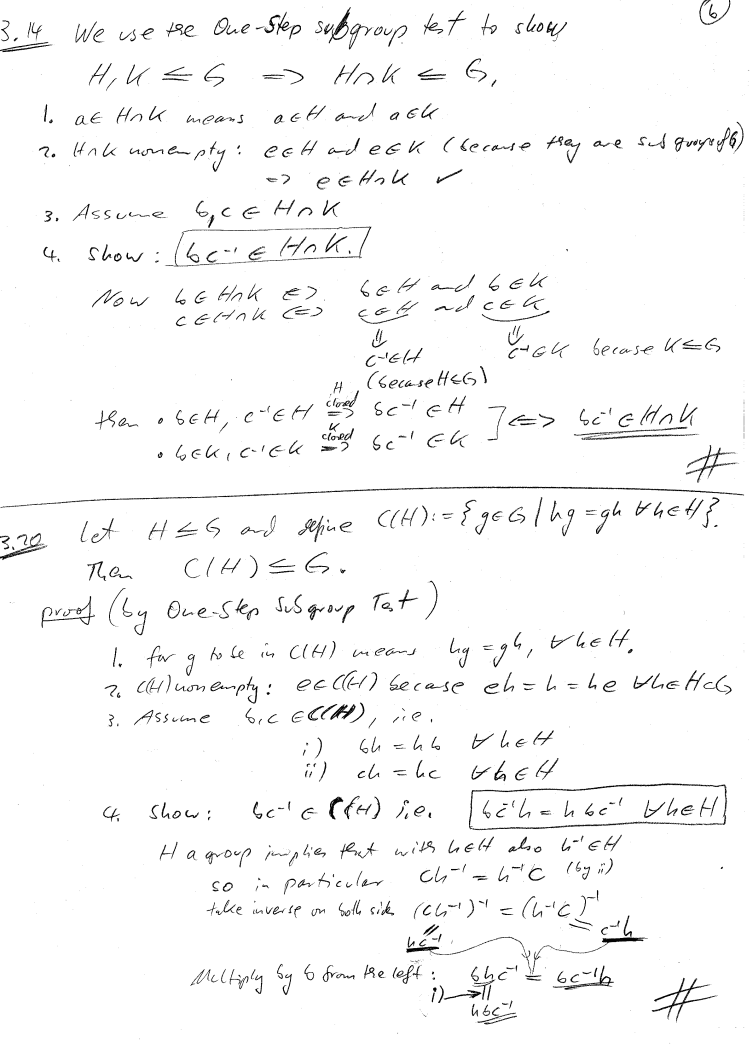 6
3.14 We use the One-Step subgroup test to show
H, K ≤ G ⇒ H∩K ≤ G,
1. a∈ H∩K means a∈H and a∈K
2. H∩K nonempty: e∈H and e∈K (because they are subgroups of G)
⇒ e∈H∩K ✓
3. Assume b,c ∈ H∩K
4. Show: bc⁻¹ ∈ H∩K.
Now b∈H∩K ⇔ b∈H and b∈K
c∈H∩K ⇔ c∈H and c∈K
⇓ ⇓
c⁻¹∈H c⁻¹∈K because K≤G
(because H≤G)
then • b∈H, c⁻¹∈H ⇒ (H closed) bc⁻¹ ∈H
• b∈K, c⁻¹∈K ⇒ (K closed) bc⁻¹ ∈K ] ⇔ bc⁻¹ ∈ H∩K
#
3.20 Let H ≤ G and define C(H):={g∈G | hg =gh ∀h∈H}.
Then C(H) ≤ G.
proof (by One-Step Subgroup Test)
1. for g to be in C(H) means hg =gh, ∀h∈H.
2. C(H) nonempty: e∈C(H) because eh = h = he ∀h∈H⊂G
3. Assume b,c ∈C(H), i.e.
i) bh = hb ∀h∈H
ii) ch = hc ∀h∈H
4. Show: bc⁻¹ ∈ C(H) i.e. bc⁻¹h = h bc⁻¹ ∀h∈H
H a group implies that with h∈H also h⁻¹∈H
so in particular ch⁻¹ = h⁻¹c (by ii)
take inverse on both sides (ch⁻¹)⁻¹ = (h⁻¹c)⁻¹
hc⁻¹ = c⁻¹h
Multiply by b from the left: bhc⁻¹ = bc⁻¹h
i) → ||
hbc⁻¹
#